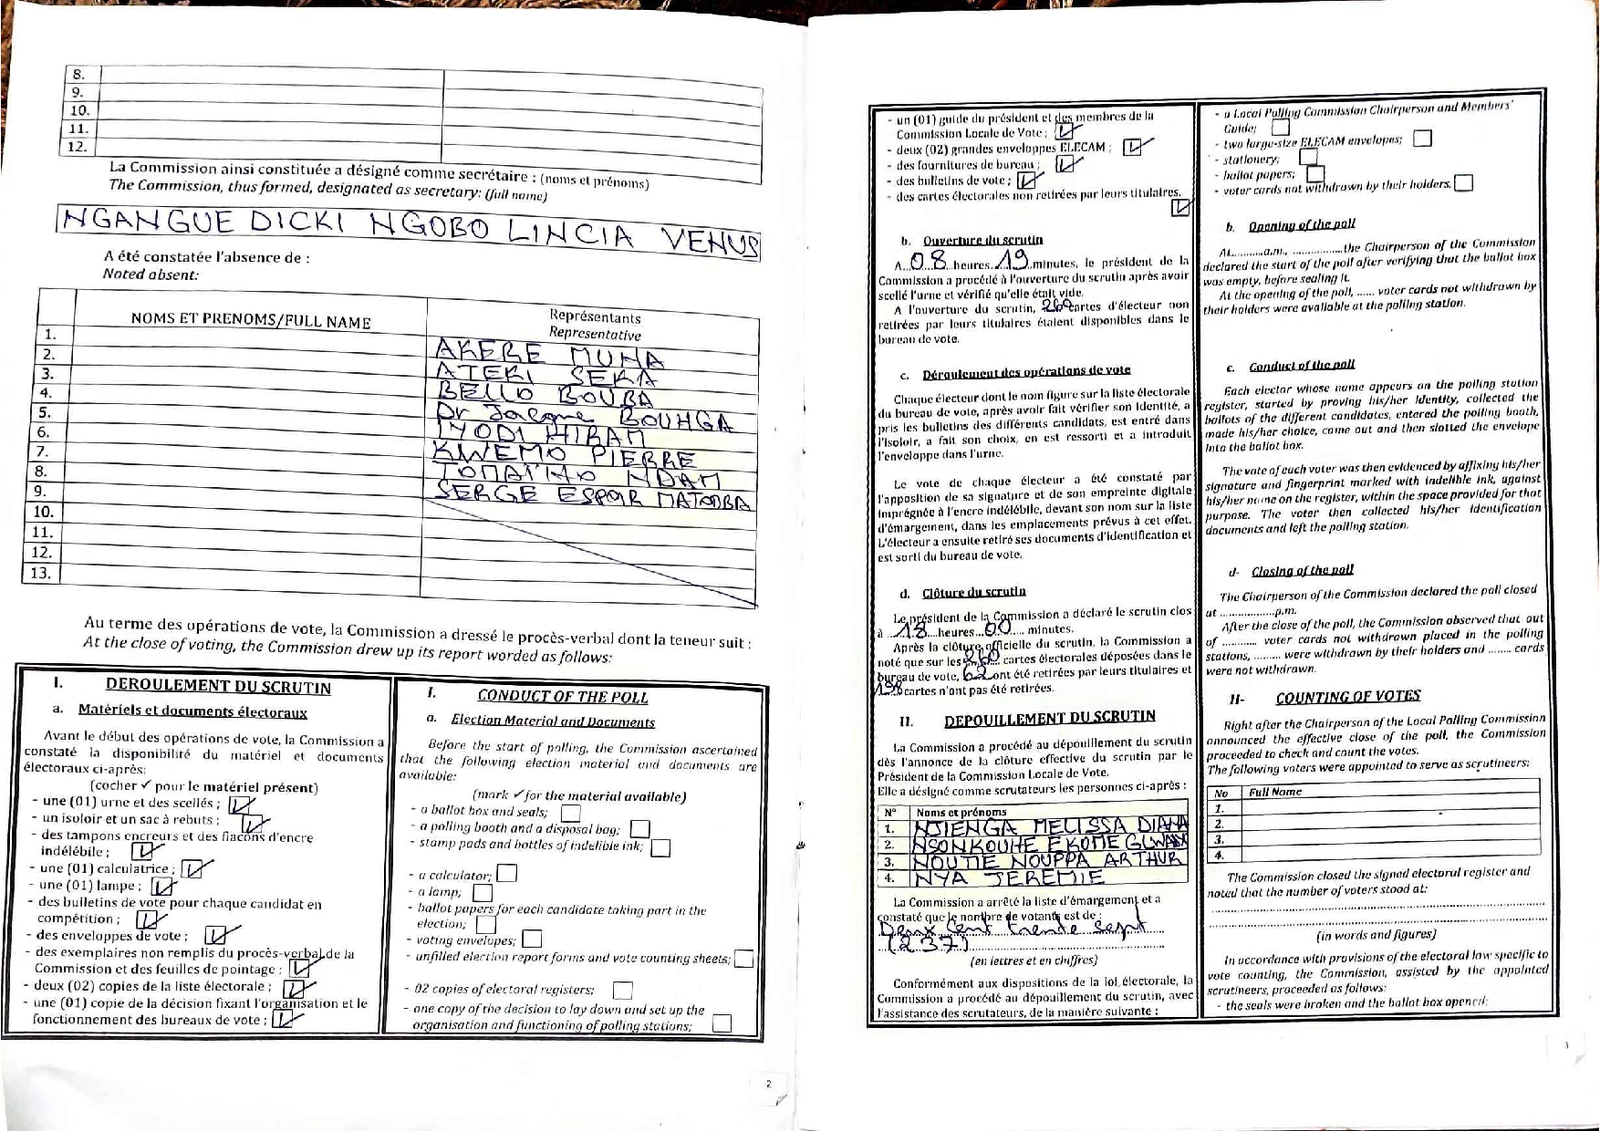 8.
9.
10.
11.
12.
La Commission ainsi constituée a désigné comme secrétaire : (noms et prénoms)
The Commission, thus formed, designated as secretary: (full name)
NGANGUE DICKI NGOBO LINCIA VENUS
A été constatée l'absence de :
Noted absent:
NOMS ET PRENOMS/FULL NAME
Représentants
Representative
1. AKERE MUNA
2. ATEKI SEKA
3. BELLO BOUBA
4. Dr Jacque BOUHGA
5. IYODI HIRAM
6. KWEMO PIERRE
7. TOMAÏNO NDAM
8. SERGE ESPOIR MATOMBA
9.
10.
11.
12.
13.
Au terme des opérations de vote, la Commission a dressé le procès-verbal dont la teneur suit :
At the close of voting, the Commission drew up its report worded as follows:
I. DEROULEMENT DU SCRUTIN
a. Matériels et documents électoraux
Avant le début des opérations de vote, la Commission a
constaté la disponibilité du matériel et documents
électoraux ci-après:
(cocher ✓ pour le matériel présent)
- une (01) urne et des scellés ;
- un isoloir et un sac à rebuts ;
- des tampons encreurs et des flacons d'encre
indélébile ;
- une (01) calculatrice ;
- une (01) lampe ;
- des bulletins de vote pour chaque candidat en
compétition ;
- des enveloppes de vote ;
- des exemplaires non remplis du procès-verbal de la
Commission et des feuilles de pointage ;
- deux (02) copies de la liste électorale ;
- une (01) copie de la décision fixant l'organisation et le
fonctionnement des bureaux de vote ;
I. CONDUCT OF THE POLL
a. Election Material and Documents
Before the start of polling, the Commission ascertained
that the following election material and documents are
available:
(mark ✓ for the material available)
- a ballot box and seals;
- a polling booth and a disposal bag;
- stamp pads and bottles of indelible ink;
- a calculator;
- a lamp;
- ballot papers for each candidate taking part in the
election;
- voting envelopes;
- unfilled election report forms and vote counting sheets;
- 02 copies of electoral registers;
- one copy of the decision to lay down and set up the
organisation and functioning of polling stations;
2
- un (01) guide du président et des membres de la
Commission Locale de Vote ;
- deux (02) grandes enveloppes ELECAM ;
- des fournitures de bureau ;
- des bulletins de vote ;
- des cartes électorales non retirées par leurs titulaires.
b. Ouverture du scrutin
A 08 heures 19 minutes, le président de la
Commission a procédé à l'ouverture du scrutin après avoir
scellé l'urne et vérifié qu'elle était vide.
A l'ouverture du scrutin, 260 cartes d'électeur non
retirées par leurs titulaires étaient disponibles dans le
bureau de vote.
c. Déroulement des opérations de vote
Chaque électeur dont le nom figure sur la liste électorale
du bureau de vote, après avoir fait vérifier son identité, a
pris les bulletins des différents candidats, est entré dans
l'isoloir, a fait son choix, en est ressorti et a introduit
l'enveloppe dans l'urne.
Le vote de chaque électeur a été constaté par
l'apposition de sa signature et de son empreinte digitale
imprégnée à l'encre indélébile, devant son nom sur la liste
d'émargement, dans les emplacements prévus à cet effet.
L'électeur a ensuite retiré ses documents d'identification et
est sorti du bureau de vote.
d. Clôture du scrutin
Le président de la Commission a déclaré le scrutin clos
à 18 heures 00 minutes.
Après la clôture officielle du scrutin, la Commission a
noté que sur les 260 cartes électorales déposées dans le
bureau de vote, 62 ont été retirées par leurs titulaires et
198 cartes n'ont pas été retirées.
II. DEPOUILLEMENT DU SCRUTIN
La Commission a procédé au dépouillement du scrutin
dès l'annonce de la clôture effective du scrutin par le
Président de la Commission Locale de Vote.
Elle a désigné comme scrutateurs les personnes ci-après :
N° Noms et prénoms
1. NJIENGA MELISSA DIANA
2. NSONKOUHE EKOME GLWADY
3. NOUTIE NOUPPA ARTHUR
4. NYA JEREMIE
La Commission a arrêté la liste d'émargement et a
constaté que le nombre de votants est de :
Deux cent trente sept
(237)
(en lettres et en chiffres)
Conformément aux dispositions de la loi électorale, la
Commission a procédé au dépouillement du scrutin, avec
l'assistance des scrutateurs, de la manière suivante :
- a Local Polling Commission Chairperson and Members'
Guide;
- two large-size ELECAM envelopes;
- stationery;
- ballot papers;
- voter cards not withdrawn by their holders.
b. Opening of the poll
At..........a.m., ...............the Chairperson of the Commission
declared the start of the poll after verifying that the ballot box
was empty, before sealing it.
At the opening of the poll, ...... voter cards not withdrawn by
their holders were available at the polling station.
c. Conduct of the poll
Each elector whose name appears on the polling station
register, started by proving his/her identity, collected the
ballots of the different candidates, entered the polling booth,
made his/her choice, came out and then slotted the envelope
into the ballot box.
The vote of each voter was then evidenced by affixing his/her
signature and fingerprint marked with indelible ink, against
his/her name on the register, within the space provided for that
purpose. The voter then collected his/her identification
documents and left the polling station.
d- Closing of the poll
The Chairperson of the Commission declared the poll closed
at .................p.m.
After the close of the poll, the Commission observed that out
of .......... voter cards not withdrawn placed in the polling
stations, ......... were withdrawn by their holders and ........ cards
were not withdrawn.
II- COUNTING OF VOTES
Right after the Chairperson of the Local Polling Commission
announced the effective close of the poll, the Commission
proceeded to check and count the votes.
The following voters were appointed to serve as scrutineers:
No Full Name
1.
2.
3.
4.
The Commission closed the signed electoral register and
noted that the number of voters stood at:
(in words and figures)
In accordance with provisions of the electoral law specific to
vote counting, the Commission, assisted by the appointed
scrutineers, proceeded as follows:
- the seals were broken and the ballot box opened;
3